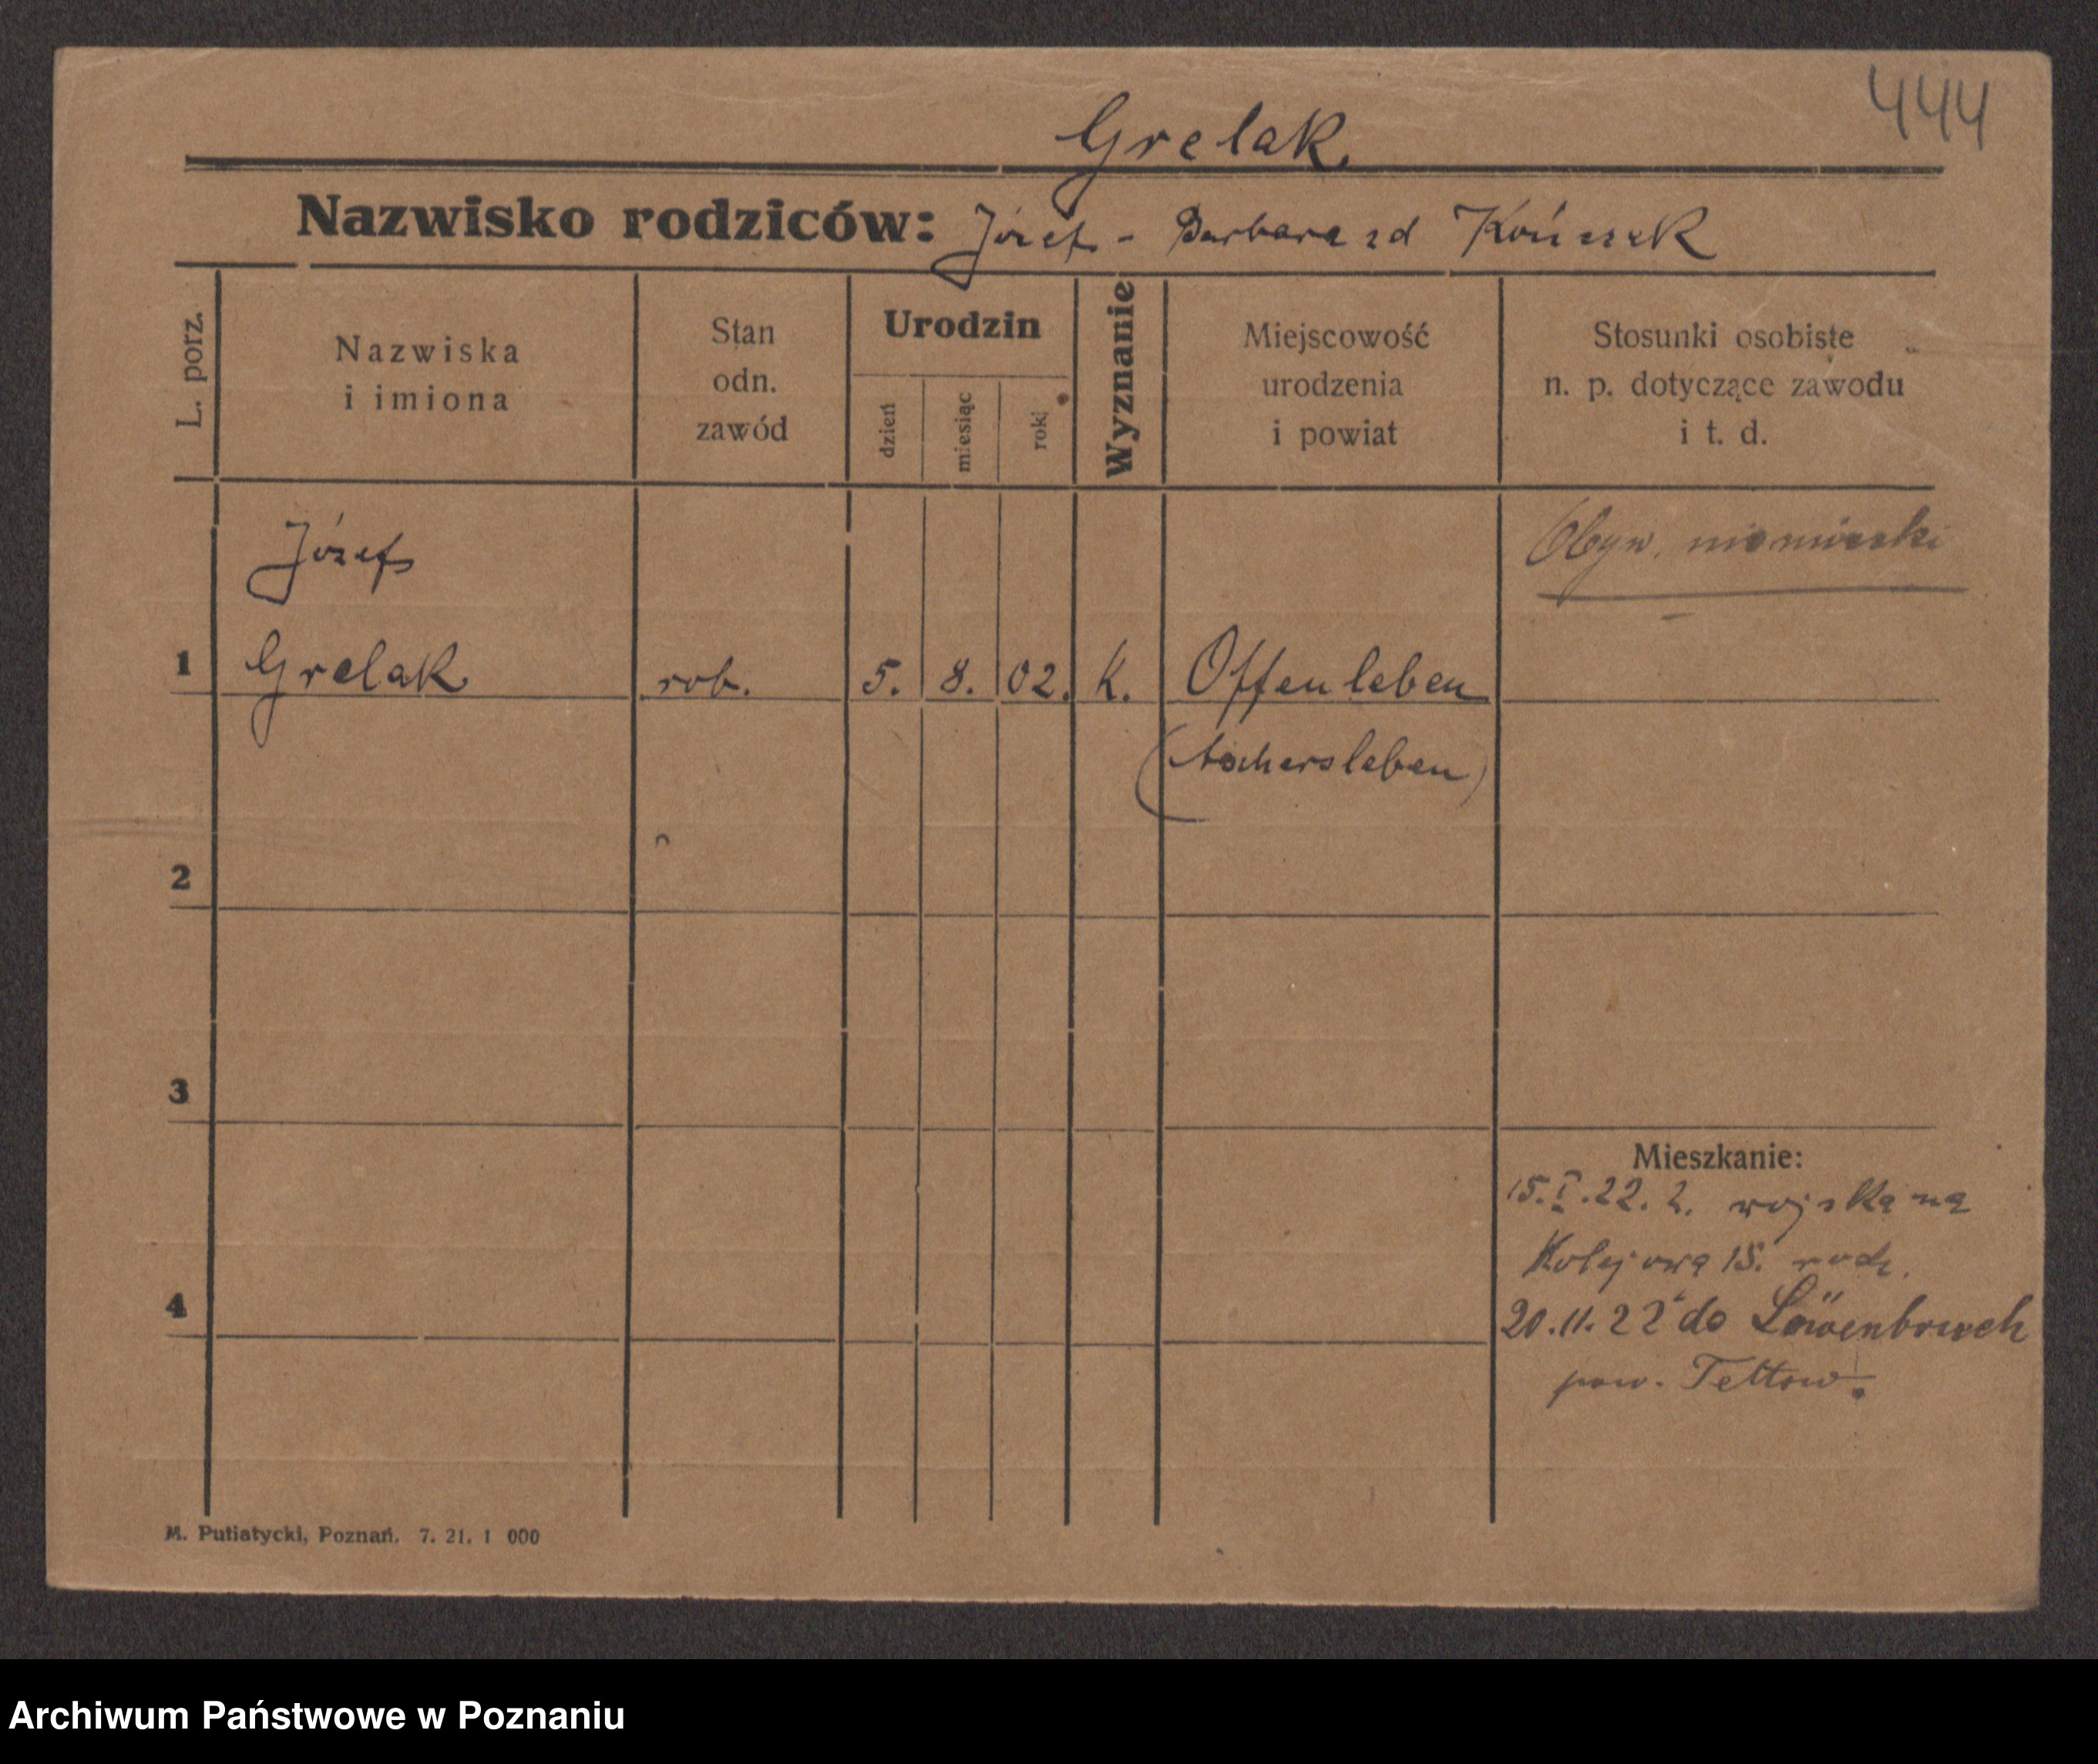 444
Grelak
Nazwisko rodziców: Józef - Barbara zd Kończak
L. porz.
Nazwiska
i imiona
Stan
odn.
zawód
Urodzin
dzień
miesiąc
rok
Wyznanie
Miejscowość
urodzenia
i powiat
Stosunki osobiste
n. p. dotyczące zawodu
i t. d.
Obyw. niemiecki
Józef
1 Grelak rob. 5. 8. 02. k. Offenleben
(Aschersleben)
2
3
Mieszkanie:
15.I.22. z. wojska na
Kolejową 15. rodz.
4
20.11.22 do Löwenbruch
pow. Teltow.
M. Putiatycki, Poznań. 7. 21. 1 000
Archiwum Państwowe w Poznaniu